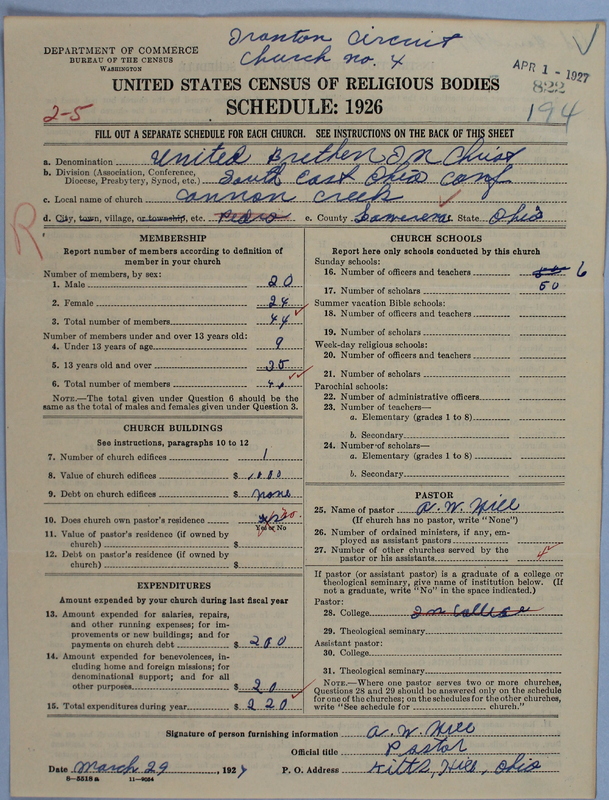 Ironton Circuit
Church no. 4
DEPARTMENT OF COMMERCE
BUREAU OF THE CENSUS
WASHINGTON
APR 1 - 1927
822
194
UNITED STATES CENSUS OF RELIGIOUS BODIES
SCHEDULE: 1926
2-5
FILL OUT A SEPARATE SCHEDULE FOR EACH CHURCH. SEE INSTRUCTIONS ON THE BACK OF THIS SHEET
a. Denomination United Brethen In Christ
b. Division (Association, Conference, Diocese, Presbytery, Synod, etc.) South East Ohio Conf
c. Local name of church Cannon Creek
d. City, town, village, or township, etc. Pedro e. County Lawrence State Ohio
R
MEMBERSHIP
Report number of members according to definition of member in your church
Number of members, by sex:
1. Male 20
2. Female 24
3. Total number of members 44
Number of members under and over 13 years old:
4. Under 13 years of age 9
5. 13 years old and over 35
6. Total number of members 44
NOTE.—The total given under Question 6 should be the same as the total of males and females given under Question 3.
CHURCH BUILDINGS
See instructions, paragraphs 10 to 12
7. Number of church edifices 1
8. Value of church edifices $ 1000
9. Debt on church edifices $ none
10. Does church own pastor's residence no
Yes or No
11. Value of pastor's residence (if owned by church) $
12. Debt on pastor's residence (if owned by church) $
EXPENDITURES
Amount expended by your church during last fiscal year
13. Amount expended for salaries, repairs, and other running expenses; for improvements or new buildings; and for payments on church debt $ 200
14. Amount expended for benevolences, including home and foreign missions; for denominational support; and for all other purposes $ 20
15. Total expenditures during year $ 220
CHURCH SCHOOLS
Report here only schools conducted by this church
Sunday schools:
16. Number of officers and teachers 6
17. Number of scholars 50
Summer vacation Bible schools:
18. Number of officers and teachers
19. Number of scholars
Week-day religious schools:
20. Number of officers and teachers
21. Number of scholars
Parochial schools:
22. Number of administrative officers
23. Number of teachers—
a. Elementary (grades 1 to 8)
b. Secondary
24. Number of scholars—
a. Elementary (grades 1 to 8)
b. Secondary
PASTOR
25. Name of pastor A. W. Hill
(If church has no pastor, write "None")
26. Number of ordained ministers, if any, employed as assistant pastors
27. Number of other churches served by the pastor or his assistants 4
If pastor (or assistant pastor) is a graduate of a college or theological seminary, give name of institution below. (If not a graduate, write "No" in the space indicated.)
Pastor:
28. College
29. Theological seminary
Assistant pastor:
30. College
31. Theological seminary
NOTE.—Where one pastor serves two or more churches, Questions 28 and 29 should be answered only on the schedule for one of the churches; on the schedules for the other churches, write "See schedule for church."
Signature of person furnishing information A. W. Hill
Official title Pastor
Date March 29, 1927 P. O. Address Kitts, Hill, Ohio
8-5518a 11-9034